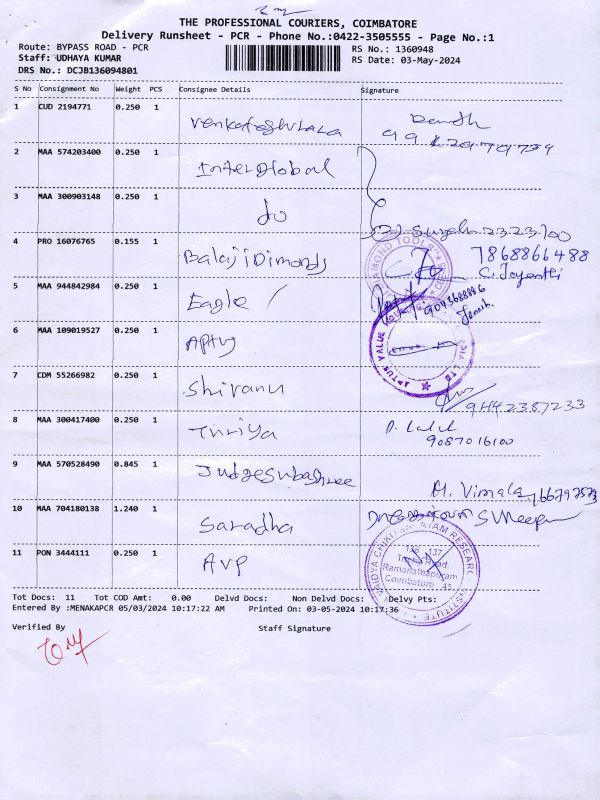 THE PROFESSIONAL COURIERS, COIMBATORE
Delivery Runsheet - PCR - Phone No.:0422-3505555 - Page No.:1
Route: BYPASS ROAD - PCR
RS No.: 1360948
Staff: UDHAYA KUMAR
RS Date: 03-May-2024
DRS No.: DCJB136094801
S No Consignment No Weight PCS Consignee Details Signature
1 CUD 2194771 0.250 1
2 MAA 574203400 0.250 1 InterGlobal
3 MAA 300903148 0.250 1 do
Suresh 2323700
4 PRO 16076765 0.155 1 Balaji Dimonds
7868866488
C. Jayanthi
5 MAA 944842984 0.250 1 Eagle
9043688886
6 MAA 109019527 0.250 1 Aptus
APTUS VALUE
7 CDM 55266982 0.250 1 Shivanu
9442387233
8 MAA 300417400 0.250 1 Turiya
9087016100
9 MAA 570528490 0.845 1 Judge Subashree
M. Vimala
10 MAA 704180138 1.240 1 Saradha
11 PON 3444111 0.250 1 AVP
VAIDYA CHIKITSALAYAM RESEARCH INSTITUTE
136, 137
Trichy Road,
Ramanathapuram
Coimbatore - 45
Tot Docs: 11 Tot COD Amt: 0.00 Delvd Docs: Non Delvd Docs: Delvy Pts:
Entered By :MENAKAPCR 05/03/2024 10:17:22 AM Printed On: 03-05-2024 10:17:36
Verified By Staff Signature